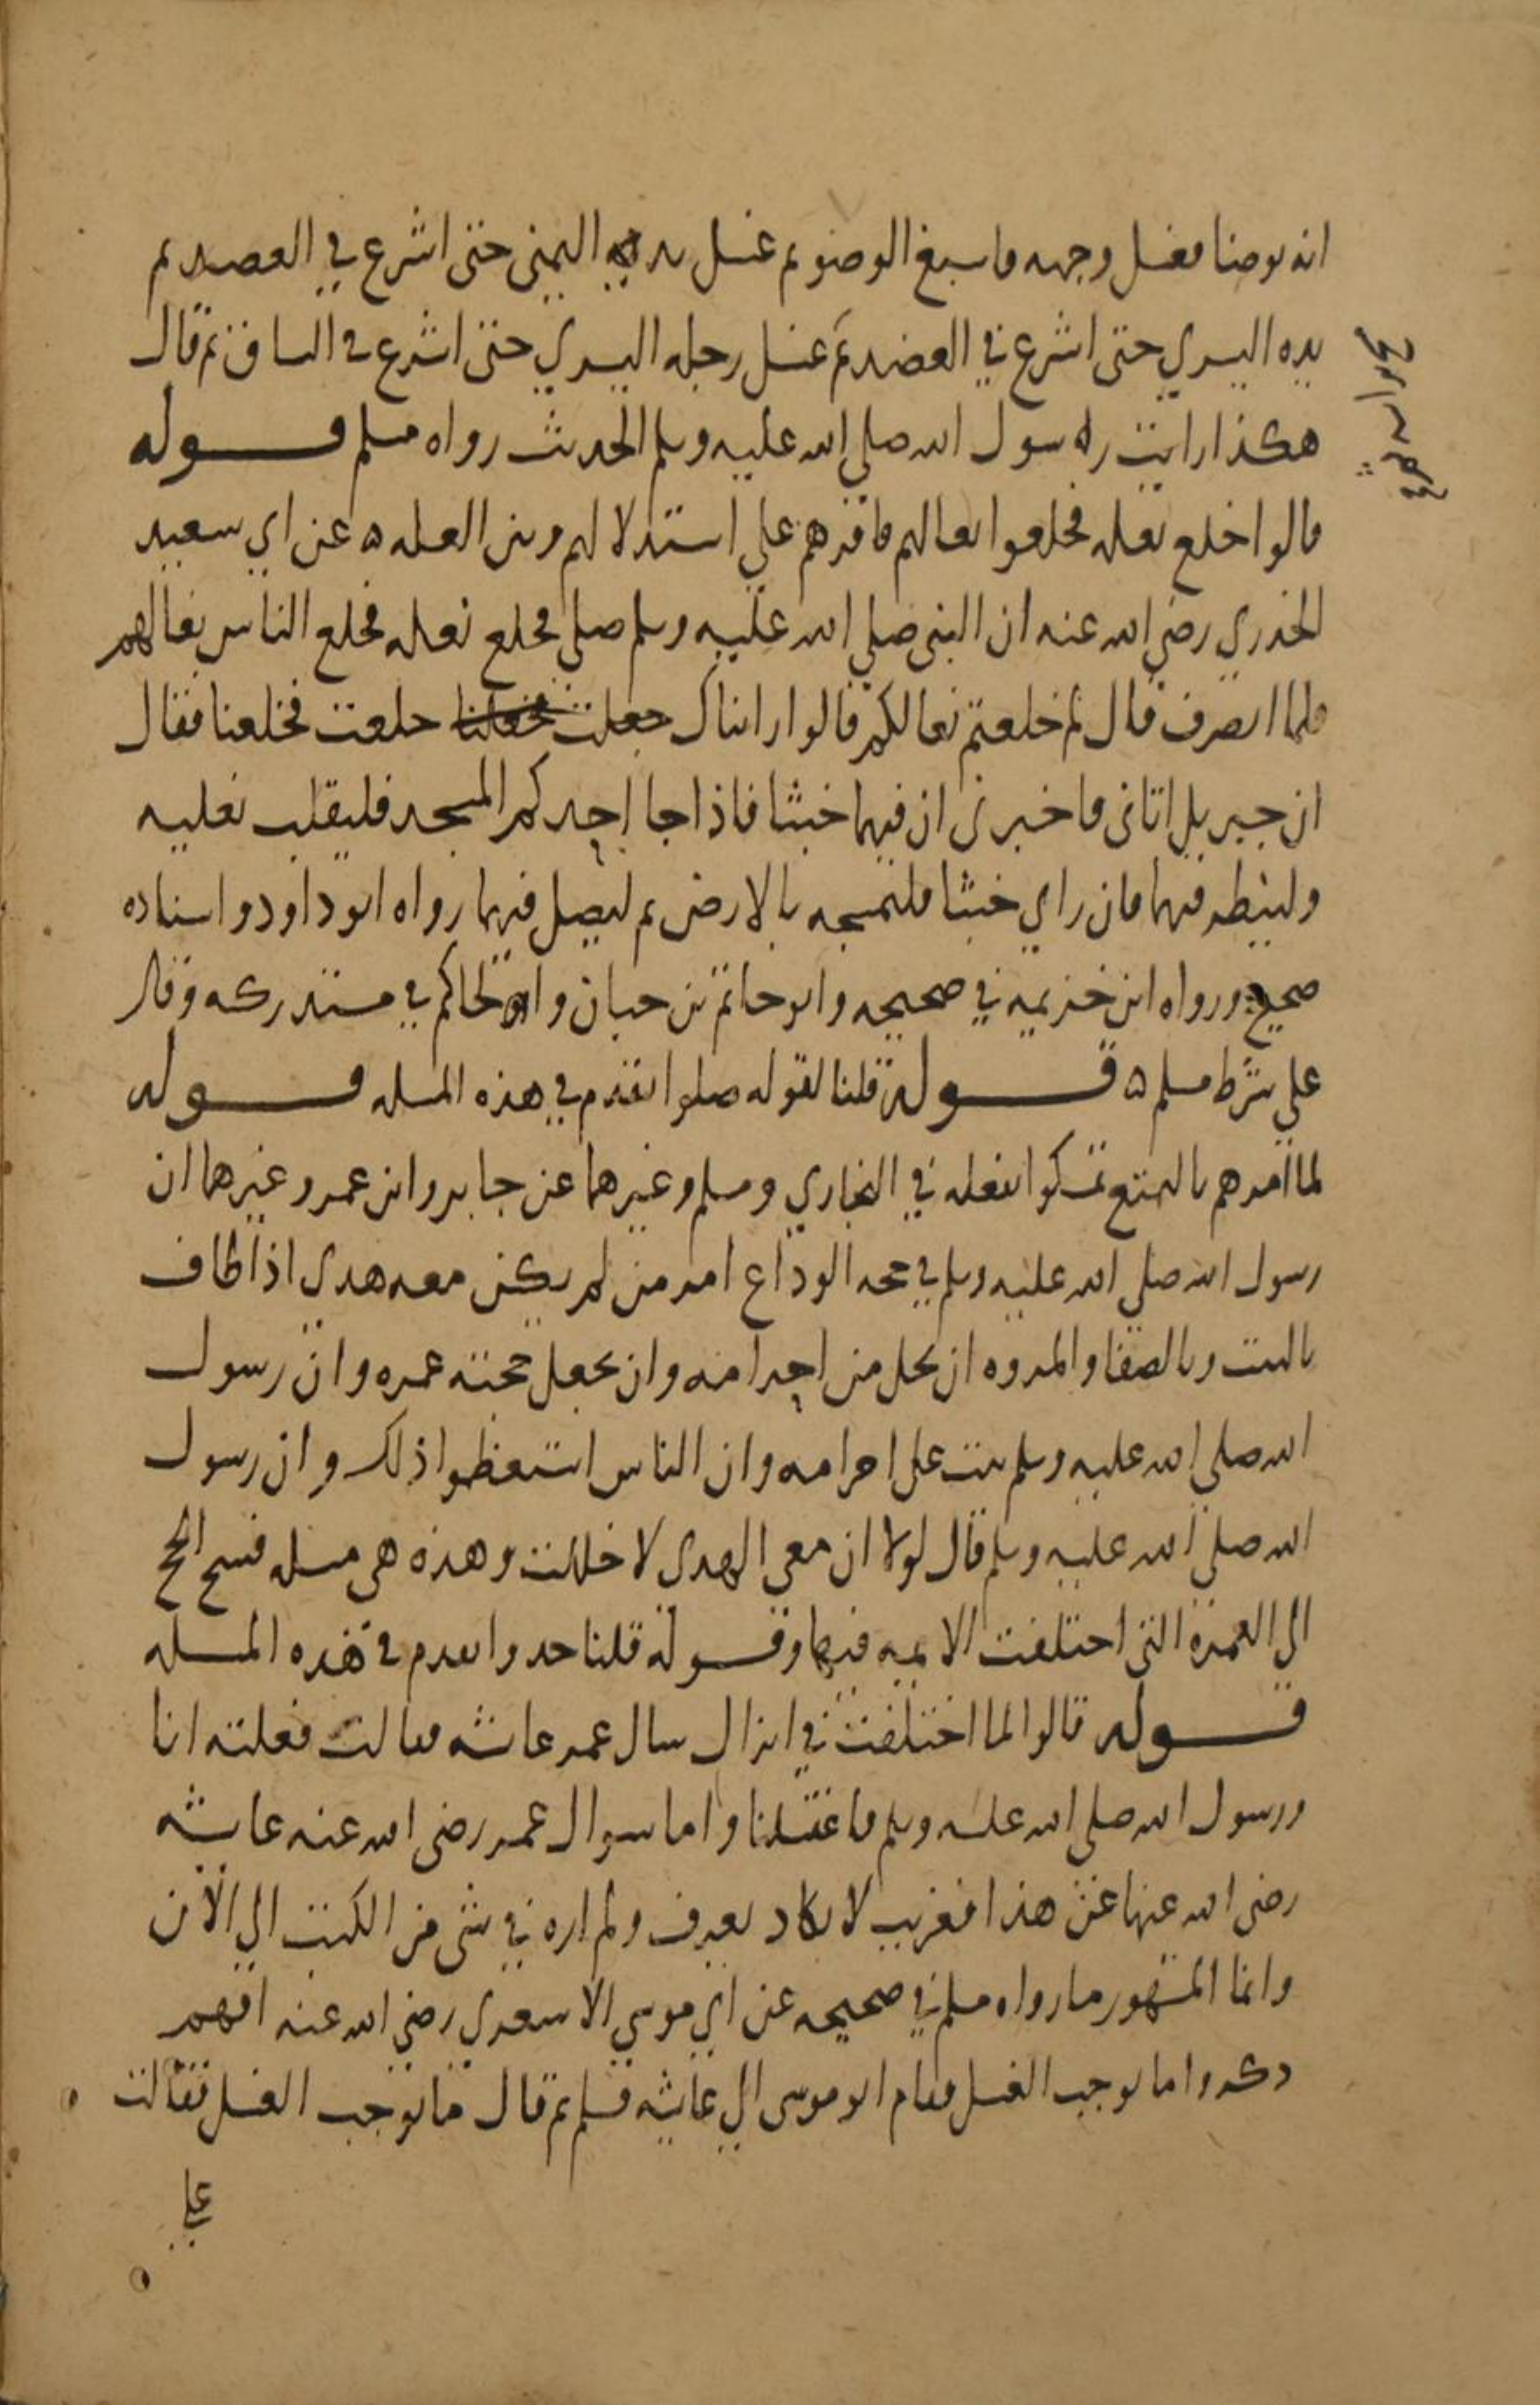 انه توضا فغسل وجهه فاسبغ الوضو ثم غسل يده اليمنى حتى اشرع في العضد ثم
يده اليسري حتى اشرع في العضد ثم غسل رجله اليسري حتى اشرع في الساق ثم قال
هكذا رايت رسول الله صلي الله عليه وسلم الحديث رواه مسلم قوله
قالوا خلع نعله فخلعوا نعالهم فاقرهم علي استدلالهم وبين العله ه عن ابي سعيد
الخدري رضي الله عنه ان النبي صلي الله عليه وسلم صلي فخلع نعله فخلع الناس نعالهم
فلما انصرف قال لم خلعتم نعالكم قالوا رايناك خلعت فخلعنا فقال
ان جبريل اتانى فاخبرنى ان فيهما خبثا فاذا جا احدكم المسجد فليقلب نعليه
ولينظر فيهما فان راي خبثا فليمسحه بالارض ثم ليصل فيهما رواه ابو داود واسناده
صحيح ورواه ابن خزيمه في صحيحه وابو حاتم بن حبان والحاكم في مستدركه وقال
علي شرط مسلم ه قوله قلنا لقوله صلوا تقدم في هذه المسله قوله
لما امرهم بالتمتع تمسكوا بفعله في البخاري ومسلم وغيرهما عن جابر وابن عمر وغيرهما ان
رسول الله صلي الله عليه وسلم في حجه الوداع امر من لم يكن معه هدى اذا طاف
بالبيت وبالصفا والمروه ان يحل من احرامه وان يجعل حجته عمره وان رسول
الله صلي الله عليه وسلم ثبت علي احرامه وان الناس استعظموا ذلك وان رسول
الله صلي الله عليه وسلم قال لولا ان معي الهدى لاحللت وهذه هى مسله فسخ الحج
الي العمره التي اختلفت الايمه فيها وقوله قلنا خذوا تقدم في هذه المسله
قوله قالوا لما اختلفت في انزال سال عمر عائشه فقالت فعلته انا
ورسول الله صلي الله عليه وسلم فاغتسلنا واما سوال عمر رضى الله عنه عايشه
رضى الله عنها عن هذا فغريب لا يكاد يعرف ولم اره في شى من الكتب الي الان
وانما المشهور ما رواه مسلم في صحيحه عن ابي موسي الاسعري رضي الله عنه انهم
ذكروا ما يوجب الغسل فقام ابو موسى الي عايشه فسلم ثم قال ما يوجب الغسل فقالت
علي